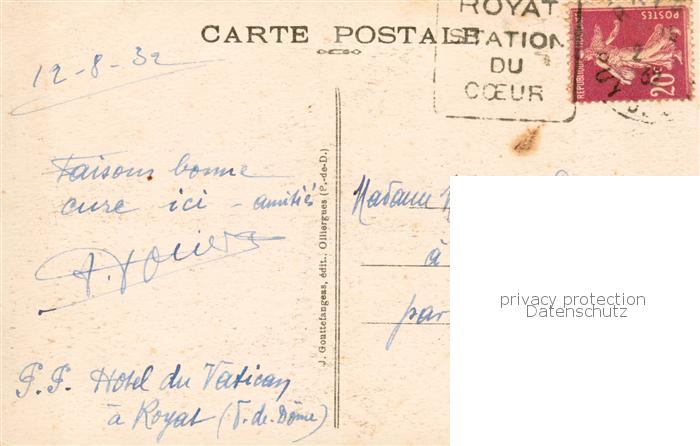 CARTE POSTALE
ROYAT
STATION
DU
CŒUR
POSTES
REPUBLIQUE FRANÇAISE
20c
12-8-32
Faisons bonne
cure ici - amitiés
P.P. Hotel du Vatican
à Royat (P.-de-Dôme)
J. Gouttefangeas, édit., Olliergues (P.-de-D.)
Madame
à
par
privacy protection
Datenschutz